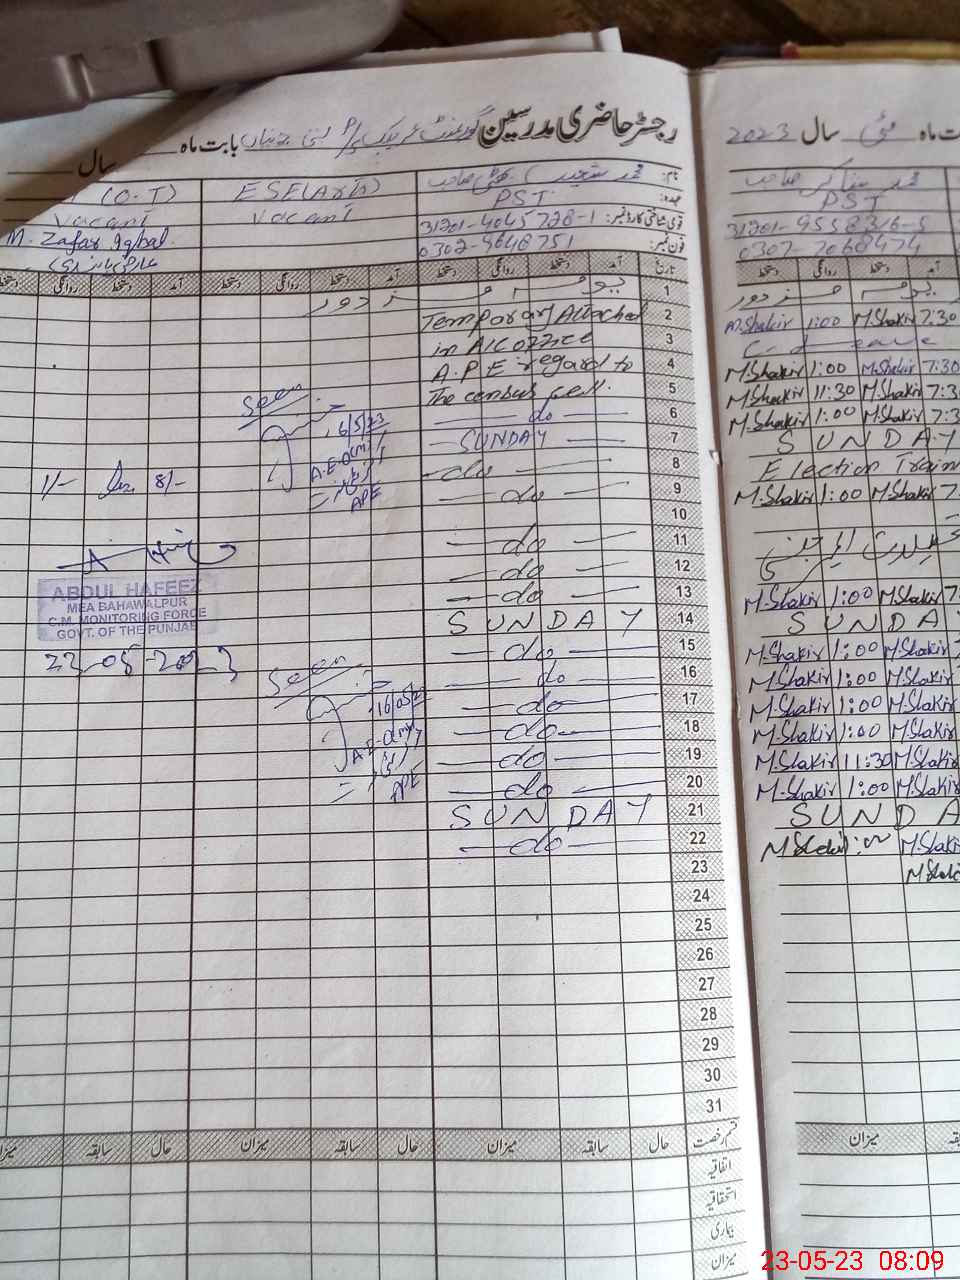 رجسٹر حاضری مدرسین گورنمنٹ بابت ماہ سال
ماہ مئی سال 2023
نام: محمد صاحب
محمد شاکر صاحب
عہدہ: PST ESE(Arts) (O.T)
PST
قومی شناختی کارڈ نمبر: 31201-4045728-1 Vacant Vacant
31201-9558316-5
فون نمبر: 0302-9648751 M. Zafar Iqbal
0307-2068474
تاریخ آمد دستخط روانگی دستخط آمد دستخط روانگی دستخط آمد دستخط روانگی
آمد دستخط روانگی دستخط
1 یوم مزدور
یوم مزدور
2 Temporary Attached
M.Shakir 1:00 M.Shakir 7:30
3 in A/C office
C-Leave
4 A.P.E regard to
M.Shakir 1:00 M.Shakir 7:30
5 The census cell.
M.Shakir 11:30 M.Shakir 7:3
6 do
M.Shakir 1:00 M.Shakir 7:3
7 SUNDAY
SUNDAY
8 do
Election Train
9 do
M.Shakir 1:00 M.Shakir 7
10
11 do
12 do
13 do
M.Shakir 1:00 M.Shakir 7
14 SUNDAY
SUNDA
15 do
M.Shakir 1:00 M.Shakir
16 do
M.Shakir 1:00 M.Shakir
17 do
M.Shakir 1:00 M.Shakir
18 do
M.Shakir 1:00 M.Shakir
19 do
M.Shakir 11:30 M.Shakir
20 do
M.Shakir 1:00 M.Shakir
21 SUNDAY
SUNDA
22 do
23
24
25
26
27
28
29
30
31
Seen
6/5/23
A.E.O(m)
APE
1/- 8/-
ABDUL HAFEEZ
MEA BAHAWALPUR
C.M. MONITORING FORCE
GOVT. OF THE PUNJAB
23-05-2023
Seen
16/05/2
A.E.O(m)
APE
قسم رخصت حال سابقہ میزان حال سابقہ میزان حال سابقہ میزان
حال سابقہ میزان
اتفاقیہ
استحقاقیہ
بیماری
میزان
23-05-23 08:09